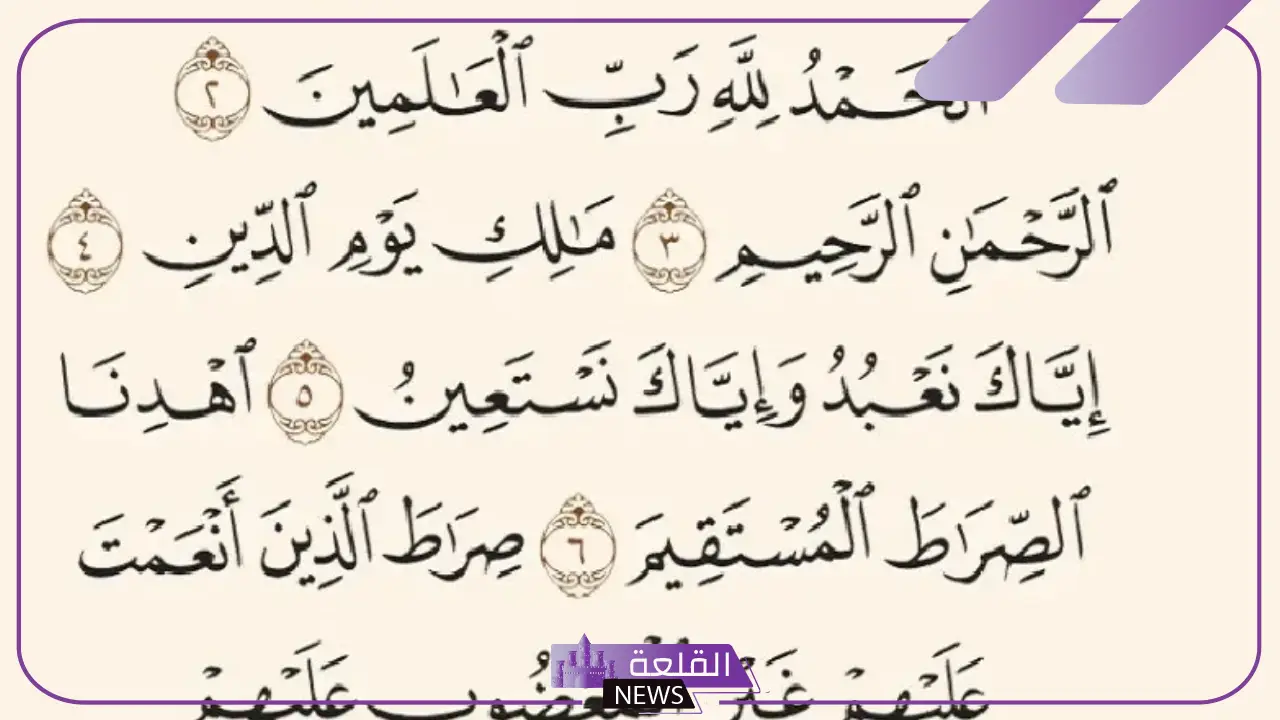 ٱلْحَمْدُ لِلَّهِ رَبِّ ٱلْعَـٰلَمِينَ ٢
ٱلرَّحْمَـٰنِ ٱلرَّحِيمِ ٣ مَـٰلِكِ يَوْمِ ٱلدِّينِ ٤
إِيَّاكَ نَعْبُدُ وَإِيَّاكَ نَسْتَعِينُ ٥ ٱهْدِنَا
ٱلصِّرَٰطَ ٱلْمُسْتَقِيمَ ٦ صِرَٰطَ ٱلَّذِينَ أَنْعَمْتَ
عَلَيْهِمْ غَيْرِ ٱلْمَغْضُوبِ عَلَيْهِمْ
القلعة
NEWS